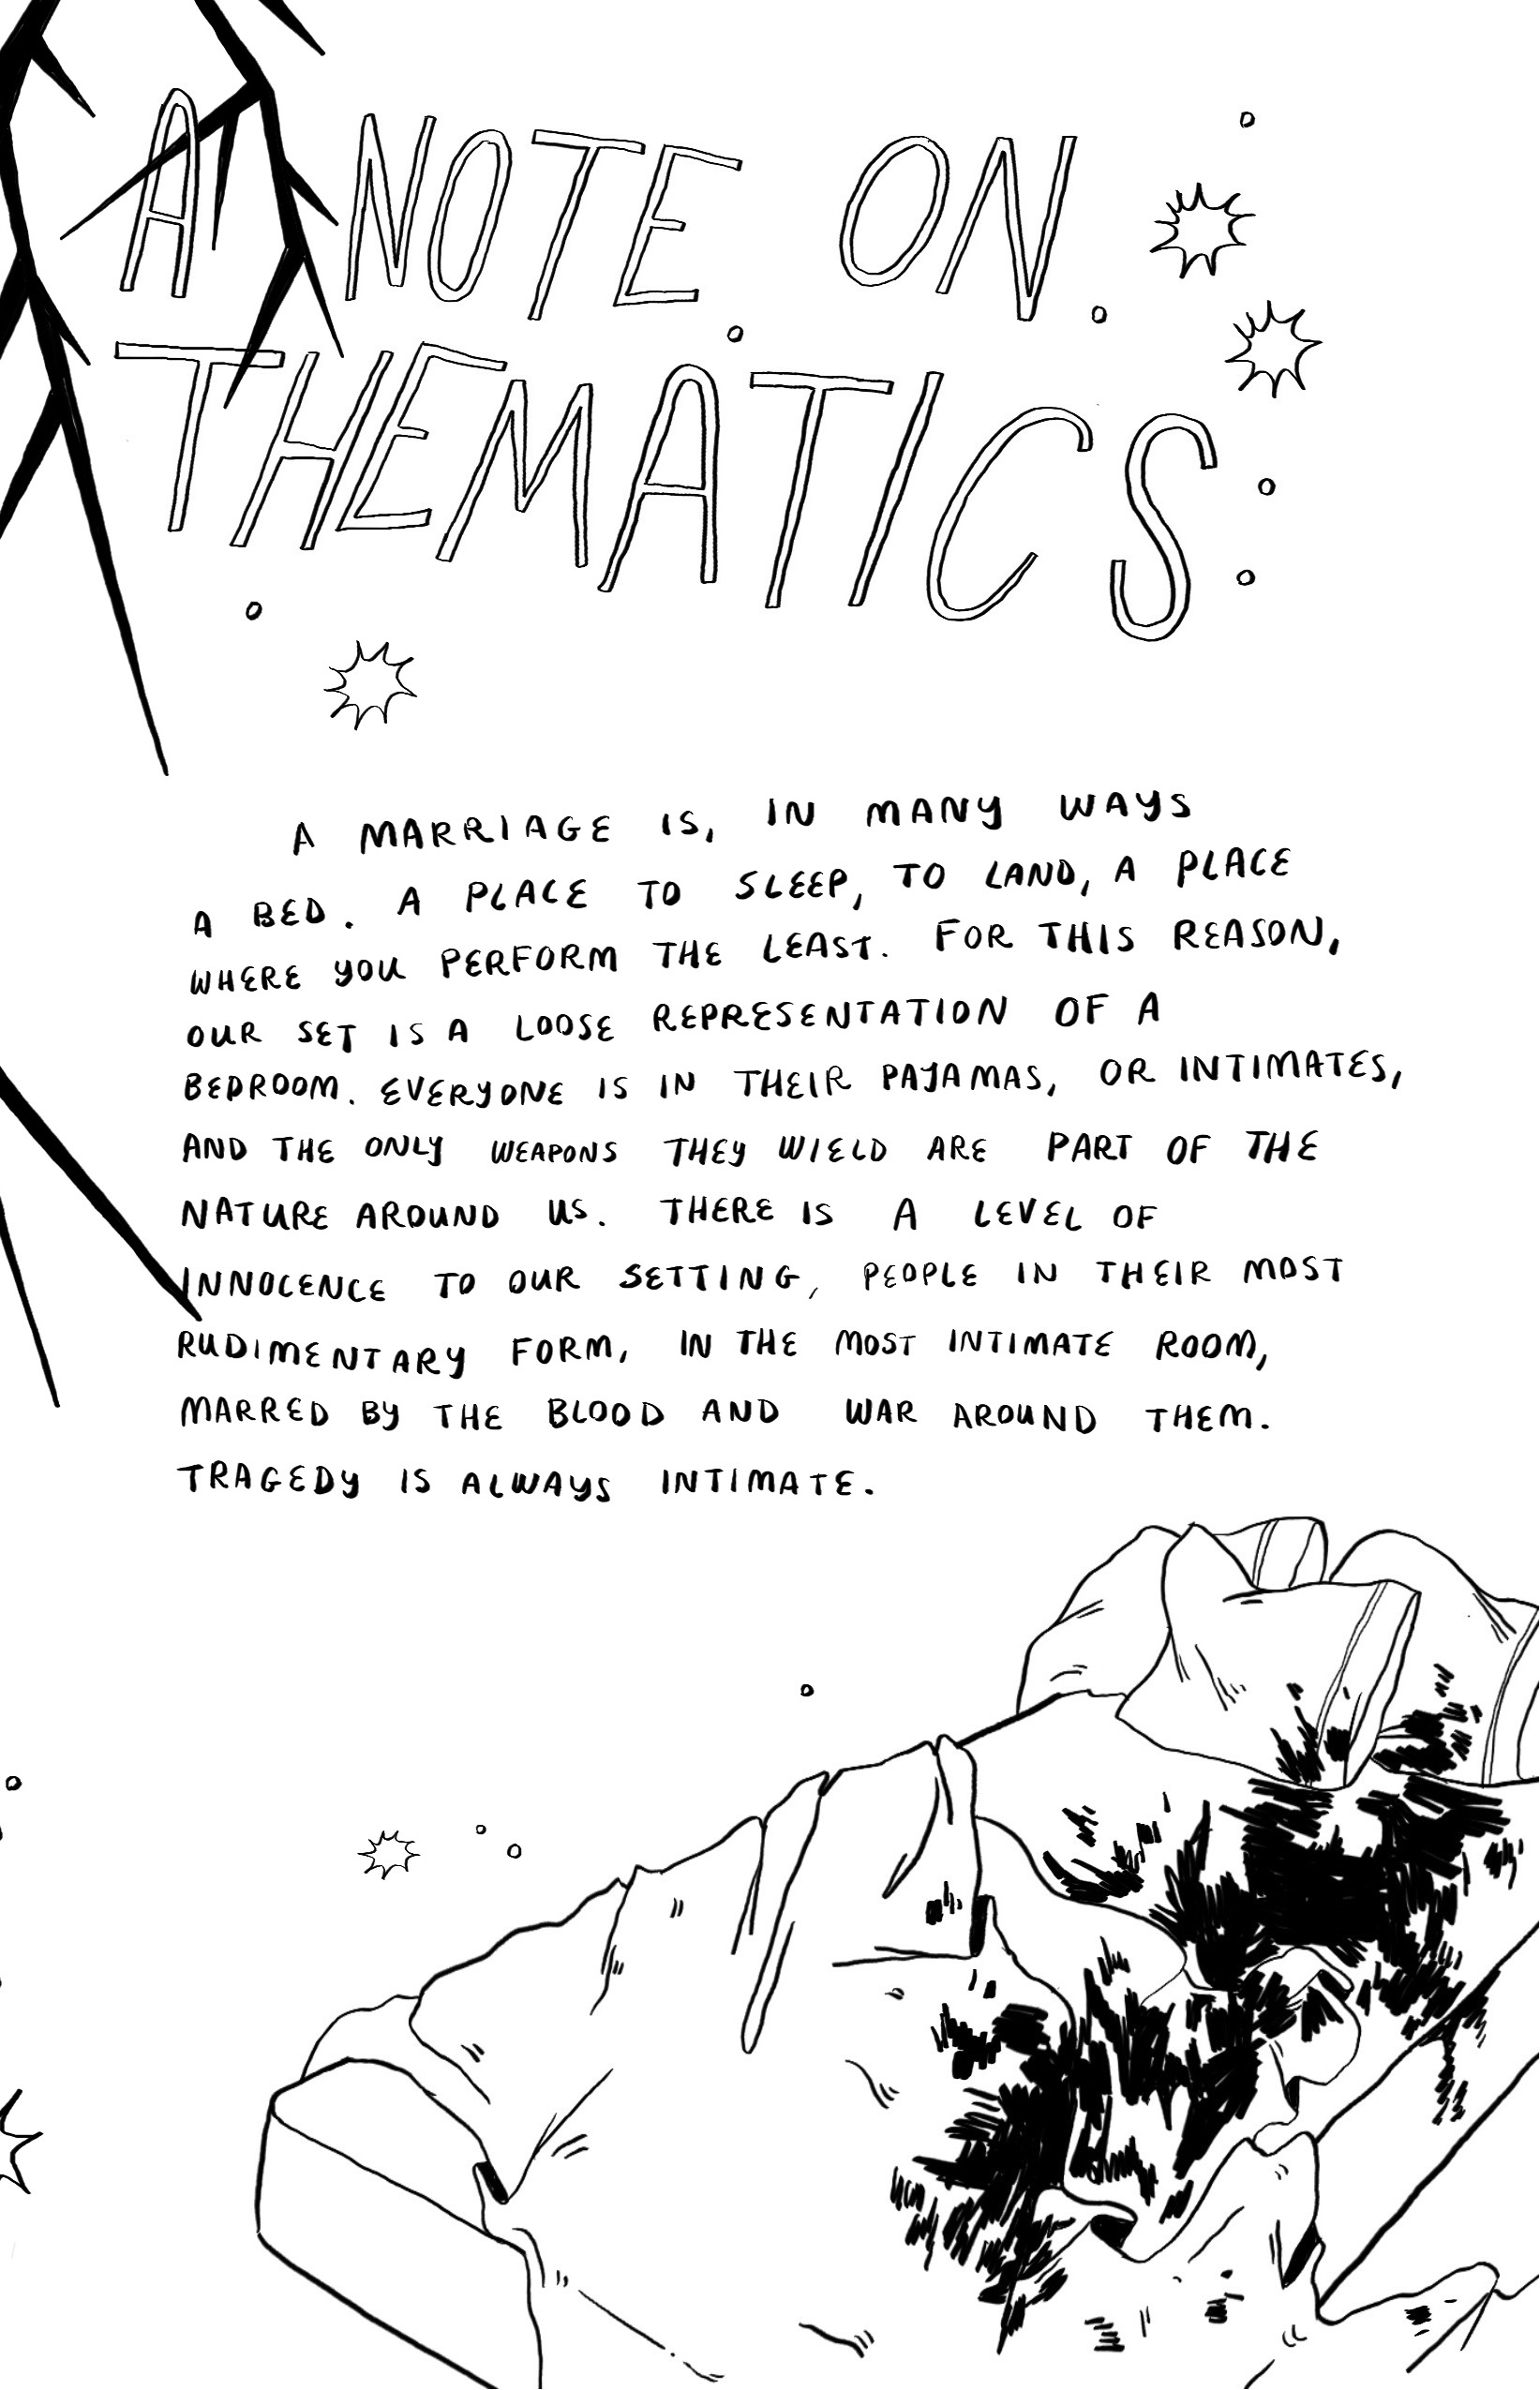 A NOTE ON
THEMATICS
A MARRIAGE IS, IN MANY WAYS
A BED. A PLACE TO SLEEP, TO LAND, A PLACE
WHERE YOU PERFORM THE LEAST. FOR THIS REASON,
OUR SET IS A LOOSE REPRESENTATION OF A
BEDROOM. EVERYONE IS IN THEIR PAJAMAS, OR INTIMATES,
AND THE ONLY WEAPONS THEY WIELD ARE PART OF THE
NATURE AROUND US. THERE IS A LEVEL OF
INNOCENCE TO OUR SETTING, PEOPLE IN THEIR MOST
RUDIMENTARY FORM, IN THE MOST INTIMATE ROOM,
MARRED BY THE BLOOD AND WAR AROUND THEM.
TRAGEDY IS ALWAYS INTIMATE.